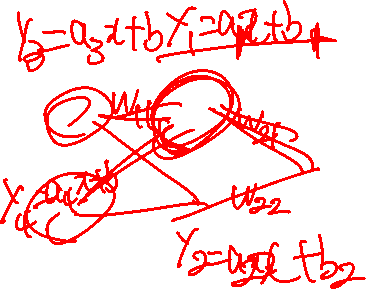 Y₃=a₃x+b Y₁=a₁x+b₁
W₁₁
W₂₂
Y₄=a₄x+b
Y₂=a₂x+b₂